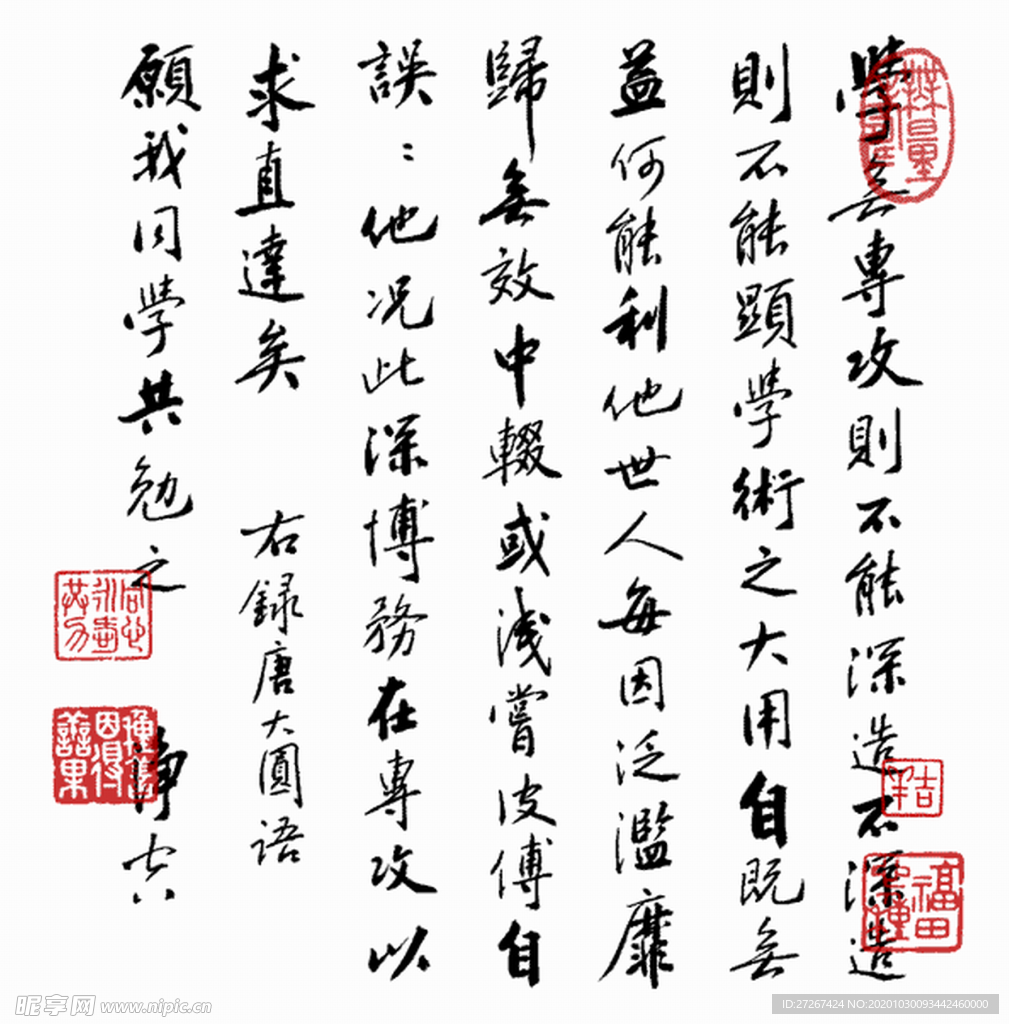 學無專攻則不能深造不深造
則不能顯學術之大用自既無
益何能利他世人每因泛濫靡
歸無效中輟或淺嘗皮傅自
誤:他况此深博務在專攻以
求直達矣
右録唐大圓語
願我同學共勉之
淨空
無量壽
吉羊
福田心種
同心永壽共勿
種善因得善果
昵享网 www.nipic.cn
ID:27267424 NO:20201030093442460000